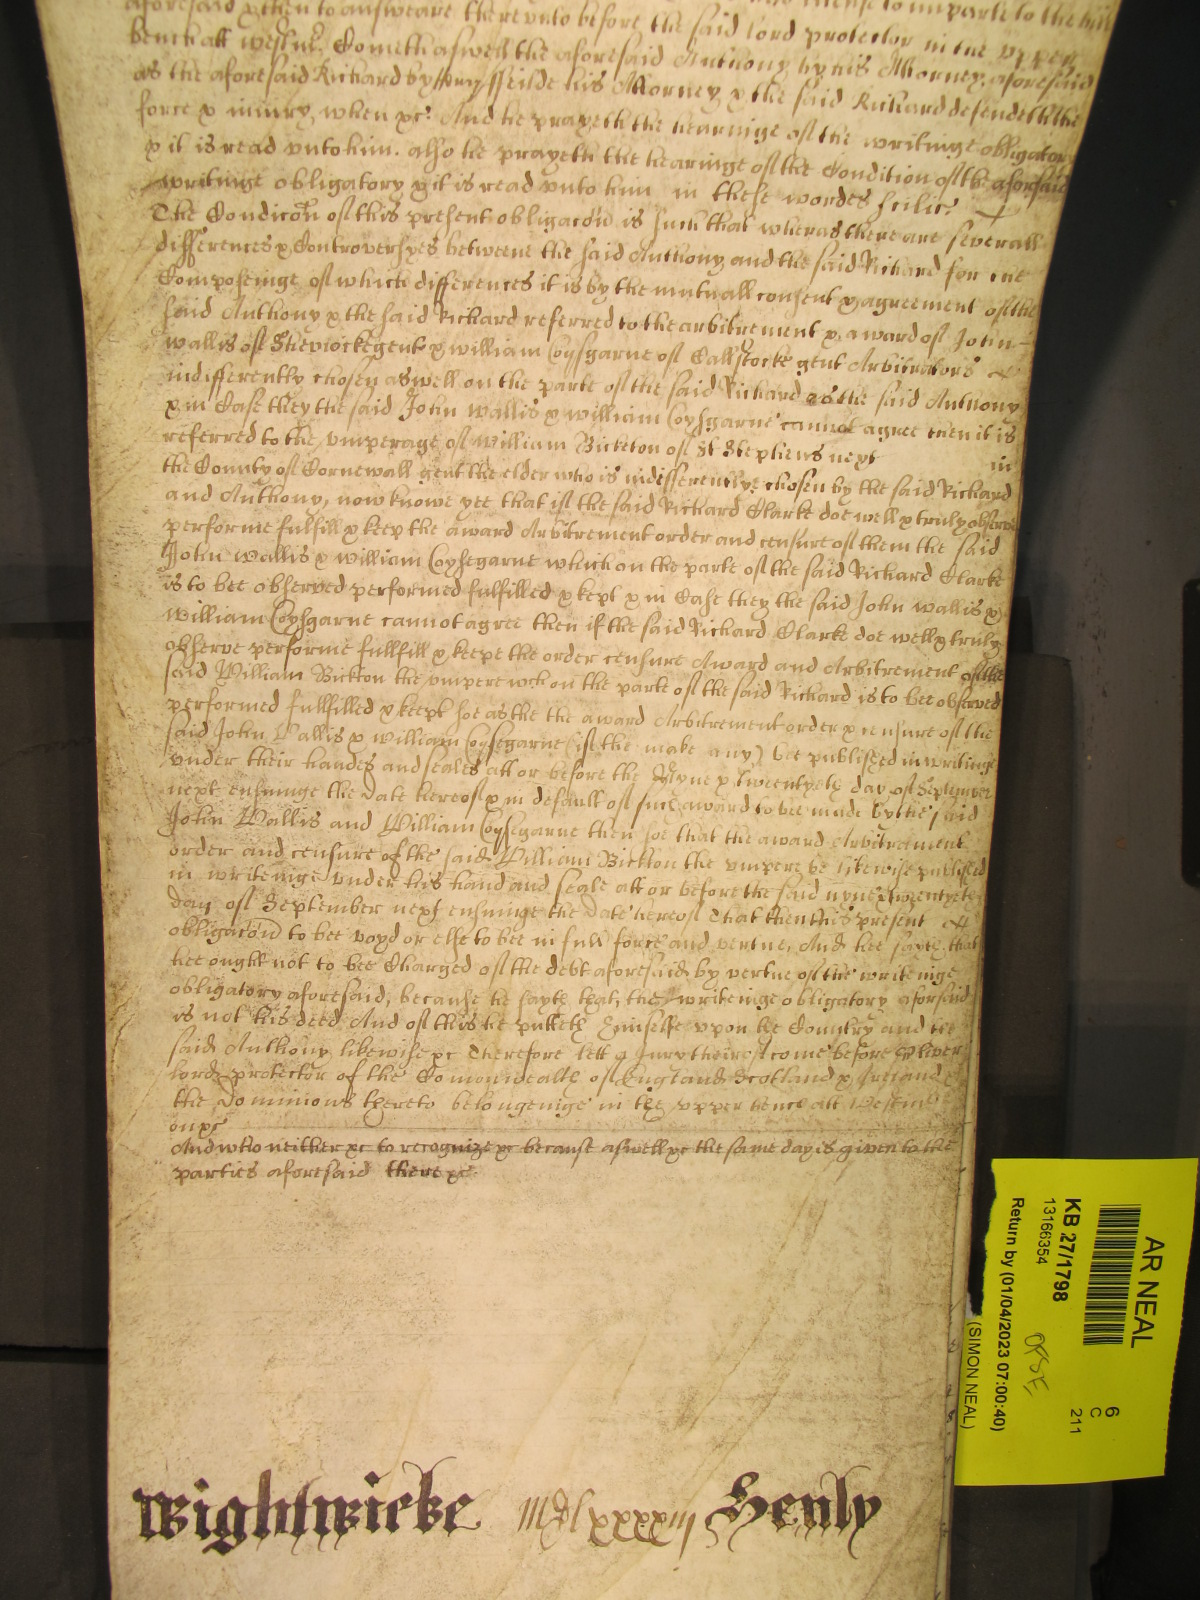 aforesaid & then to answeare there unto before the said lord protector in the upper
bench att Westmr. Cometh aswell the aforesaid Anthony by his Attorney aforesaid
as the aforesaid Richard by ffeilde his Attorney & the said Richard defendeth the
force & iniury when &c. And he prayeth the hearinge of the writinge obligatory
& it is read unto him. also he prayeth the hearinge of the Condition of the aforsaid
writinge obligatory & it is read unto him in these wordes scilic.
The Condicon of this present obligacon is such that wheras there are severall
differences & Controversyes betweene the said Anthony and the said Richard for the
Composeinge of which differences it is by the mutuall consent & agreement of the
said Anthony & the said Richard referred to the arbitrement & award of John
Wallis of gent & William Coysgarne of Callstocke gent Arbitrators
indifferently chosen aswell on the parte of the said Richard as the said Anthony
& in Case they the said John Wallis & William Coysgarne cannot agree then it is
referred to the umperage of William Bickton of St Stephens next in
the County of Cornewall gent the elder who is indifferentlye chosen by the said Richard
and Anthony, now knowe yee that if the said Richard Clarke doe well & truly observe
performe fulfill & keep the award Arbitrement order and censure of them the said
John Wallis & William Coysegarne which on the parte of the said Richard Clarke
is to bee observed performed fulfilled & kept & in Case they the said John Wallis &
William Coysgarne cannot agree then if the said Richard Clarke doe well & truly
observe performe fullfill & keepe the order censure Award and Arbitrement of the
said William Bickton the umpere wch on the parte of the said Richard is to bee observed
performed fullfilled & keept soe as the the award Arbitrement order & censure of the
said John Wallis & William Coysegarne (if the make any) bee published in writinge
under their handes and seales att or before the Nyne & twentyeth day of September
next ensuinge the date hereof & in default of such award to bee made by the said
John Wallis and William Coysegarne then soe that the award Arbitrament
order and censure of the said William Bickton the umpere be likewise published
in writeinge under his hand and seale att or before the said nyne & twentyeth
day of September next ensuinge the date hereof That then this present
obligacon to bee voyd or else to bee in full force and vertue, And hee sayth that
hee ought not to bee Charged of the debt aforesaid by vertue of the writeinge
obligatory aforesaid, because he sayth that the writeinge obligatory aforsaid
is not his deed And of this he putteth himselfe upon the Country and the
said Anthony likewise &c Therefore lett a Jury thereof come before Oliver
lord protector of the Comonwealth of England Scotland & Ireland &
the Dominions thereto belongeinge in the upper bench att Westmr
on &c
And who neither &c to recognize &c because aswell &c the same day is given to the
parties aforesaid there &c
Wightwicke Mdlxxxxiij Henly
AR NEAL
6
C
211
KB 27/1798
13166354
Return by (01/04/2023 07:00:40)
(SIMON NEAL)